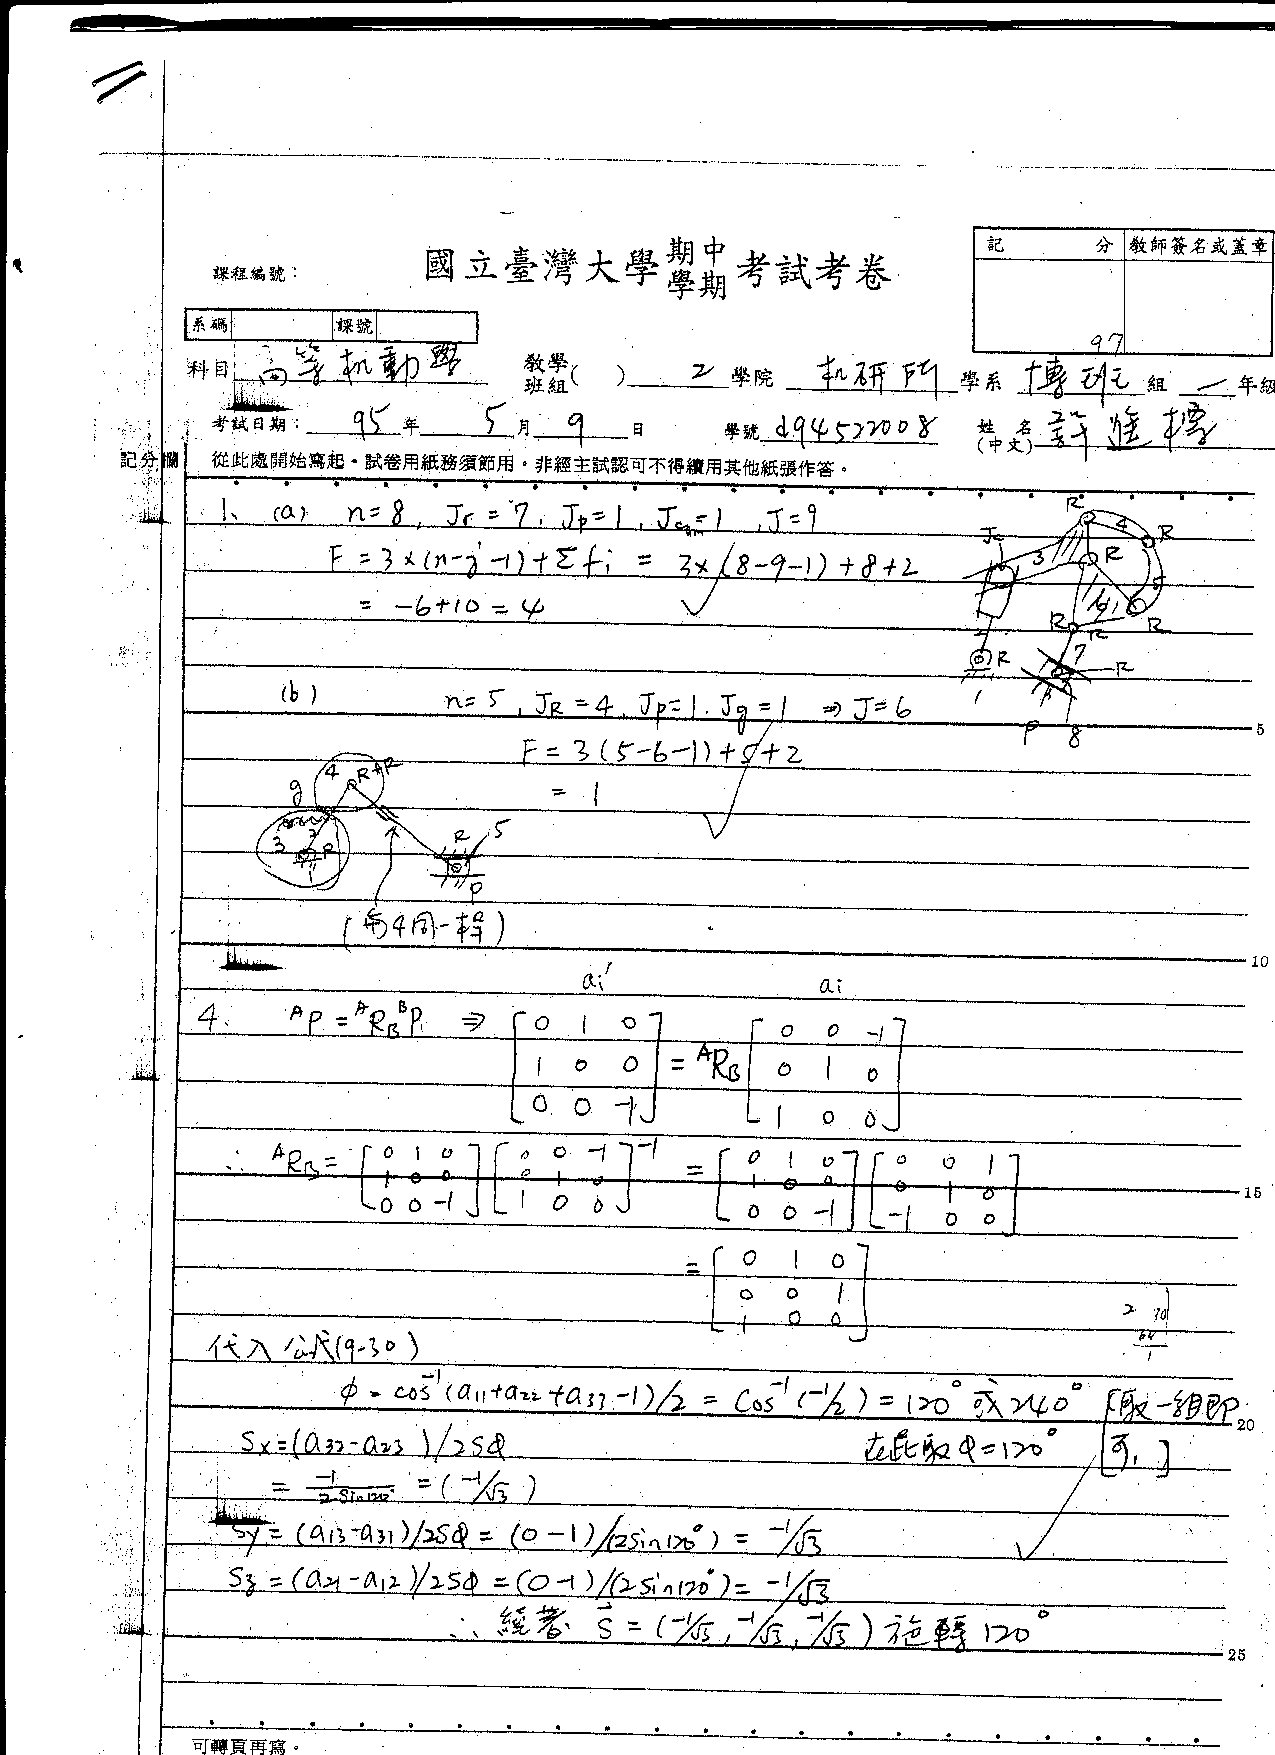 國立臺灣大學 期中 學期 考試考卷
課程編號：
記 分 教師簽名或蓋章
97
系碼 課號
科目 高等机動學 教學班組( ) 2 學院 机研所 學系 博班 組 一 年級
考試日期： 95 年 5 月 9 日 學號 d94522008 姓名(中文) 許進標
記分欄 從此處開始寫起。試卷用紙務須節用。非經主試認可不得續用其他紙張作答。
1、(a) n=8, Jr=7, Jp=1, Jcam=1, J=9
F = 3×(n-j-1)+Σfi = 3×(8-9-1)+8+2
= -6+10=4
(b) n=5, JR=4, Jp=1, Jg=1 ⇒ J=6
5
F=3(5-6-1)+5+2
= 1
(與4同一桿)
10
ai' ai
4. ᴬP = ᴬR_B ᴮP, ⇒ [0 1 0; 1 0 0; 0 0 -1] = ᴬR_B [0 0 -1; 0 1 0; 1 0 0]
∴ ᴬR_B = [0 1 0; 1 0 0; 0 0 -1] [0 0 -1; 0 1 0; 1 0 0]⁻¹ = [0 1 0; 1 0 0; 0 0 -1] [0 0 1; 0 1 0; -1 0 0]
15
= [0 1 0; 0 0 1; 1 0 0]
代入公式(9-30)
φ = cos⁻¹(a11+a22+a33-1)/2 = cos⁻¹(-1/2) = 120° 或 240° [取一組即可,]
20
Sx=(a32-a23)/2Sφ 在此取φ=120°
= -1/2sin120° = (-1/√3)
Sy = (a13-a31)/2Sφ = (0-1)/(2sin120°) = -1/√3
Sz = (a21-a12)/2Sφ = (0-1)/(2sin120°) = -1/√3
∴ 繞著 s = (-1/√3, -1/√3, -1/√3) 旋轉120°
25
可轉頁再寫。